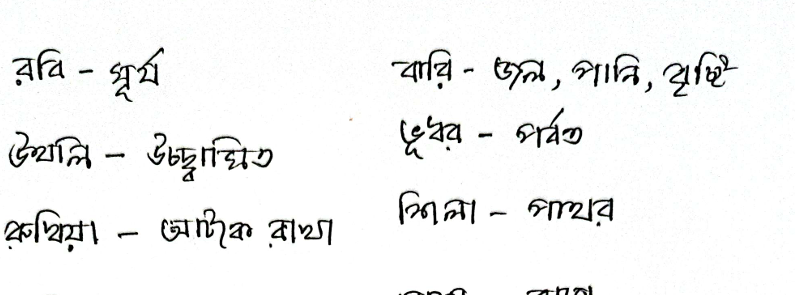 রবি - সূর্য
উথলি - উচ্ছ্বাসিত
রুধিয়া - আটকে রাখা
বারি - জল, পানি, বৃষ্টি
ভূধর - পর্বত
শিলা - পাথর